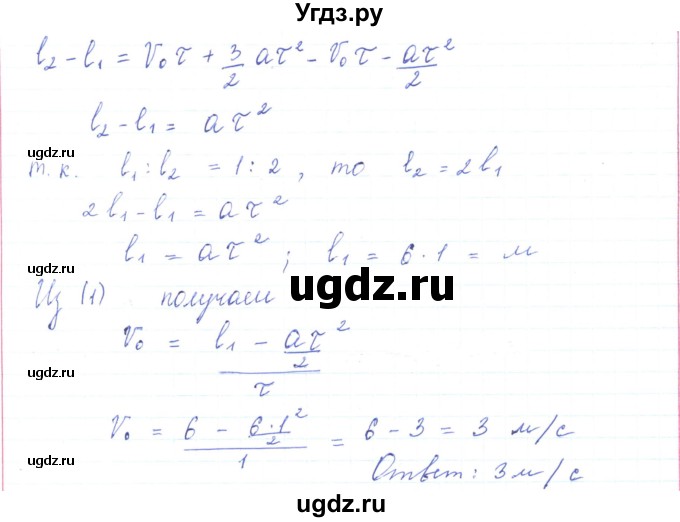 Угдз.ру
l₂ - l₁ = V₀τ + 3/2 aτ² - V₀τ - aτ²/2
l₂ - l₁ = aτ²
ugdz.ru
ugdz.ru
т.к. l₁ : l₂ = 1 : 2 , то l₂ = 2l₁
2l₁ - l₁ = aτ²
l₁ = aτ² ; l₁ = 6 · 1 = м
ugdz.ru
Из (1) получаем
ugdz.ru
V₀ = (l₁ - aτ²/2)/τ
ugdz.ru
ugdz.ru
V₀ = (6 - 6·1²/2)/1 = 6 - 3 = 3 м/с
ugdz.ru
Ответ: 3 м/с
ugdz.ru